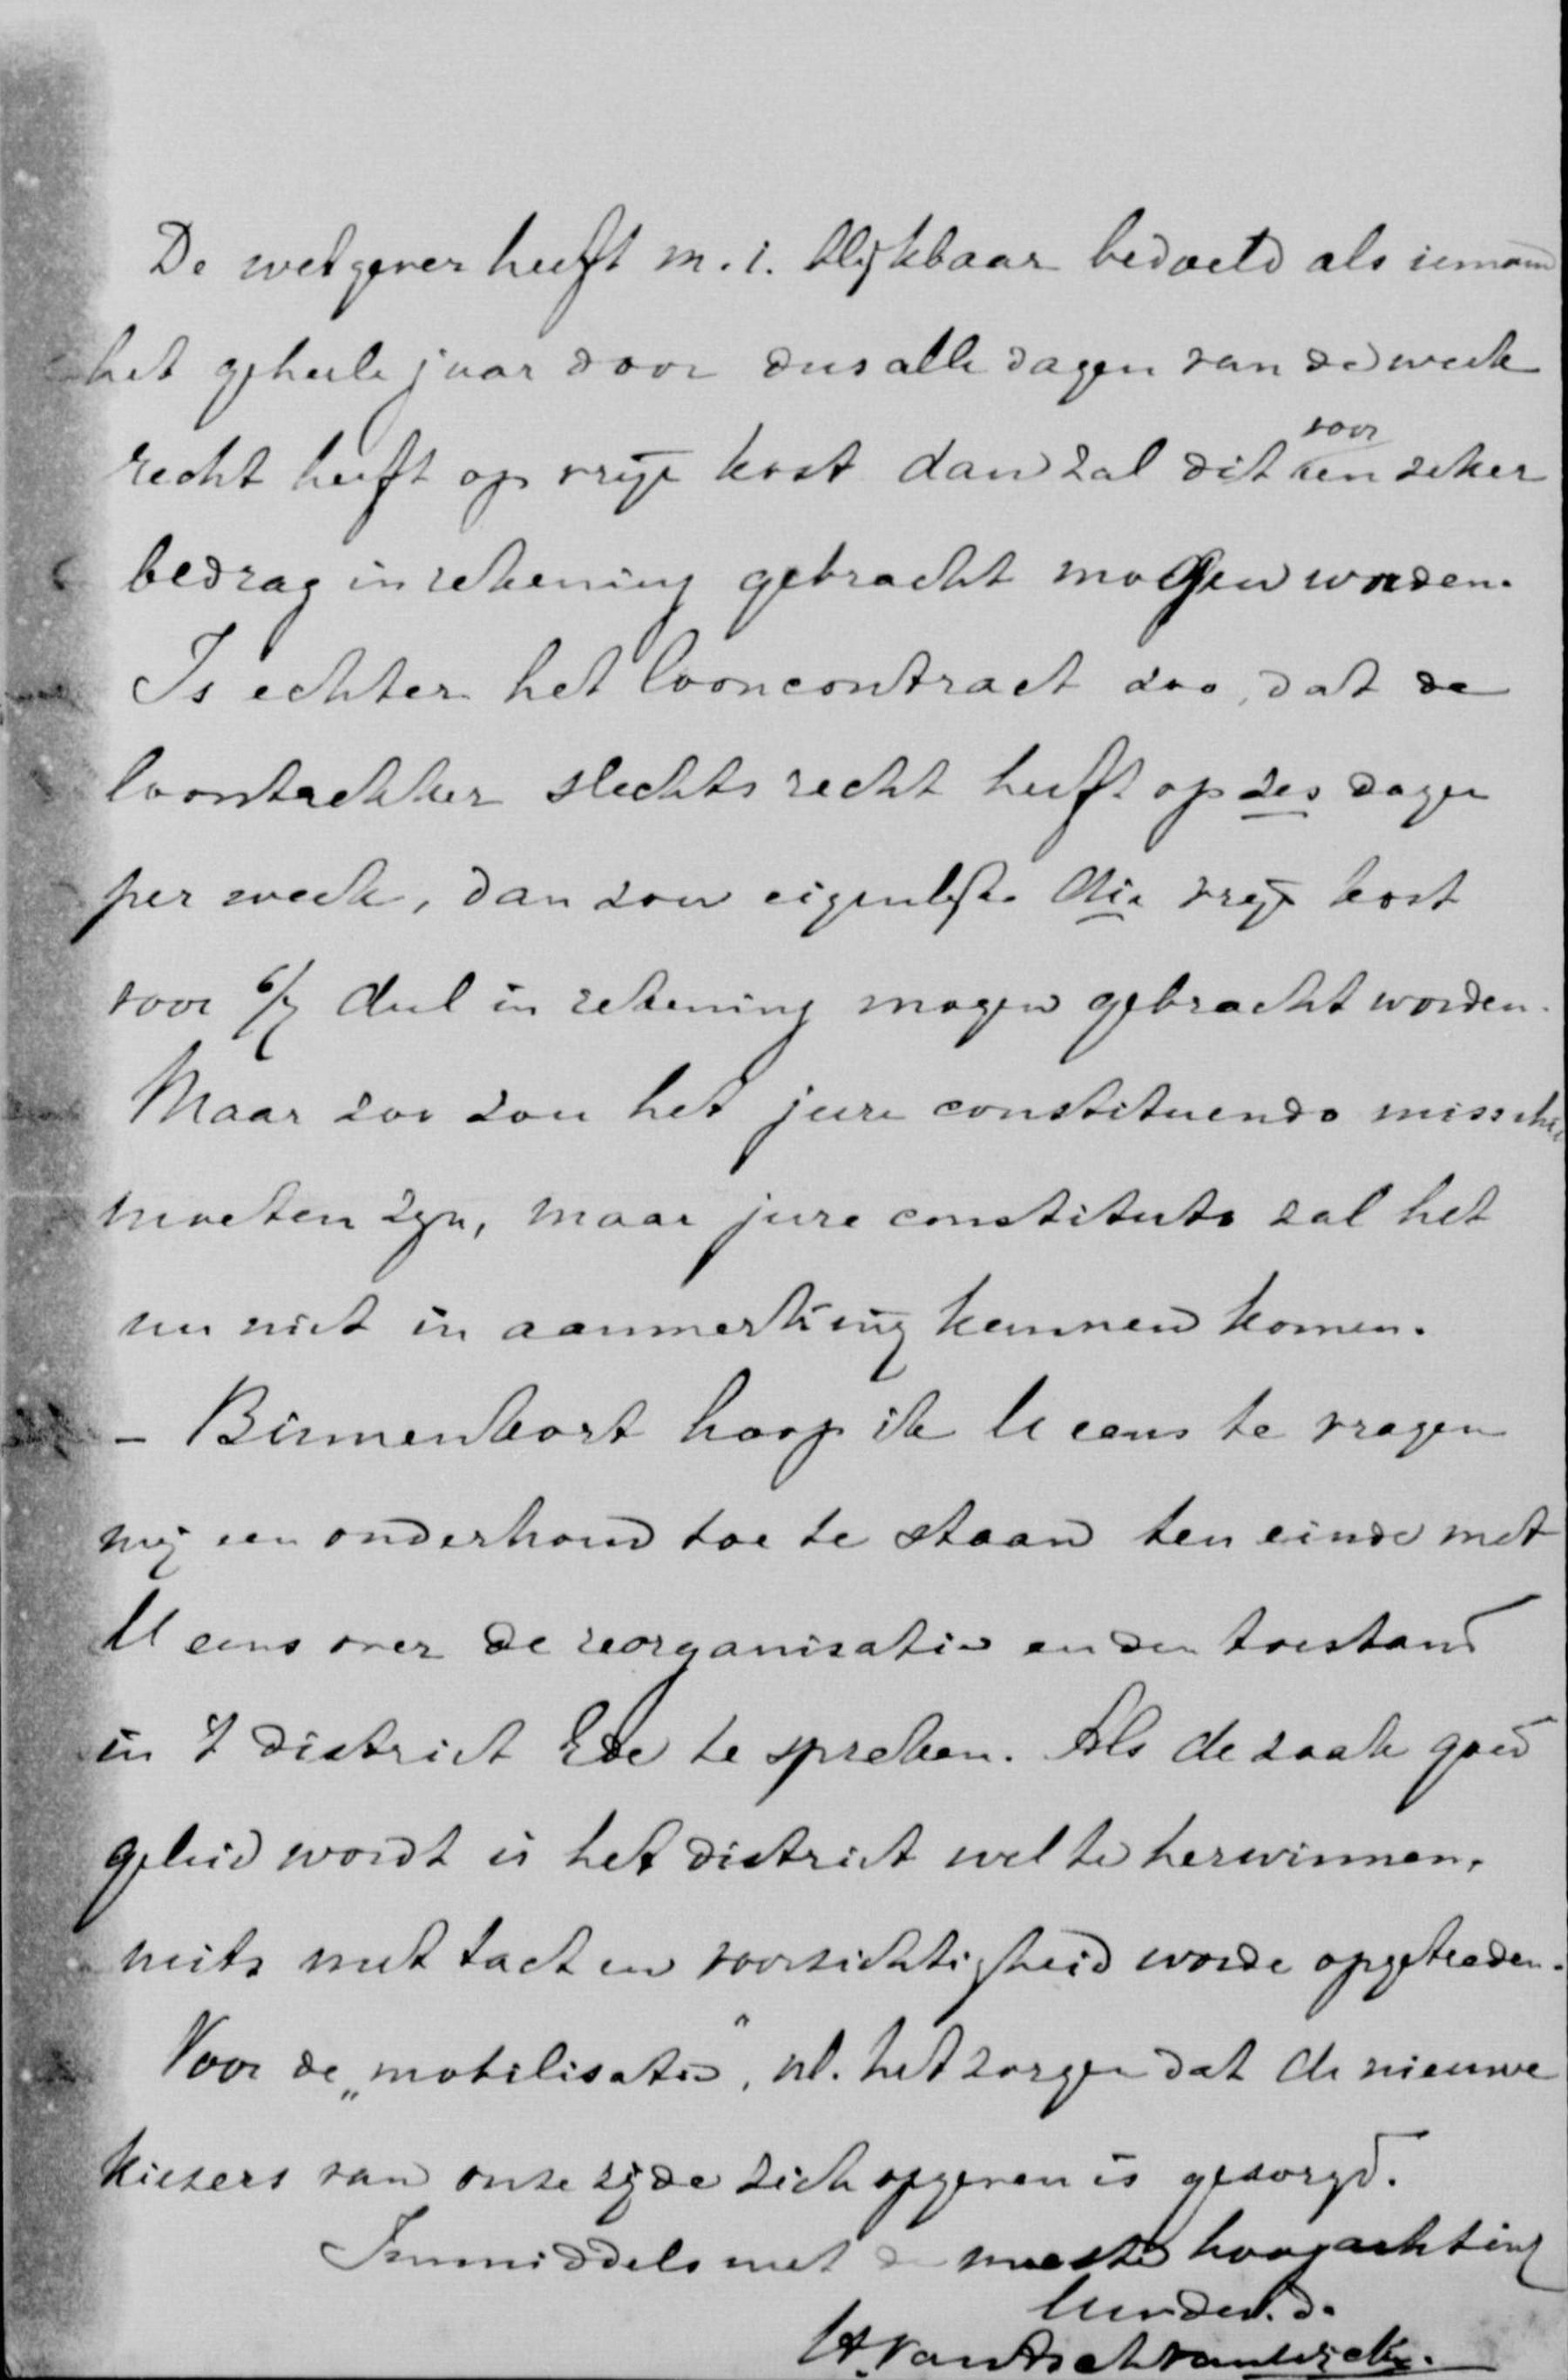 De wetgever heeft m.i. blijkbaar bedoeld als iemand
het geheele jaar door dus alle dagen van de week
recht heeft op vrije kost dan zal dit voor een zeker
bedrag in rekening gebracht mogen worden.
Is echter het looncontract zoo, dat de
loontrekker slechts recht heeft op zes dagen
per week, dan zou eigenlijk die vrije kost
voor 6/7 deel in rekening mogen gebracht worden.
Maar zoo zou het jure constituendo misschien
moeten zijn, maar jure constituto zal het
nu niet in aanmerking kunnen komen.
- Binnenkort hoop ik U eens te vragen
mij een onderhoud toe te staan ten einde met
U eens over de reorganisatie en den toestand
in 't district Ede te spreken. Als de zaak goed
geleid wordt is het district wel te herwinnen,
mits met tact en voorzichtigheid worde opgetreden.
Voor de „mobilisatie", nl. het zorgen dat de nieuwe
kiezers van onze zijde zich opgeven is gezorgd.
Inmiddels met de meeste hoogachting
Uw dw. d.